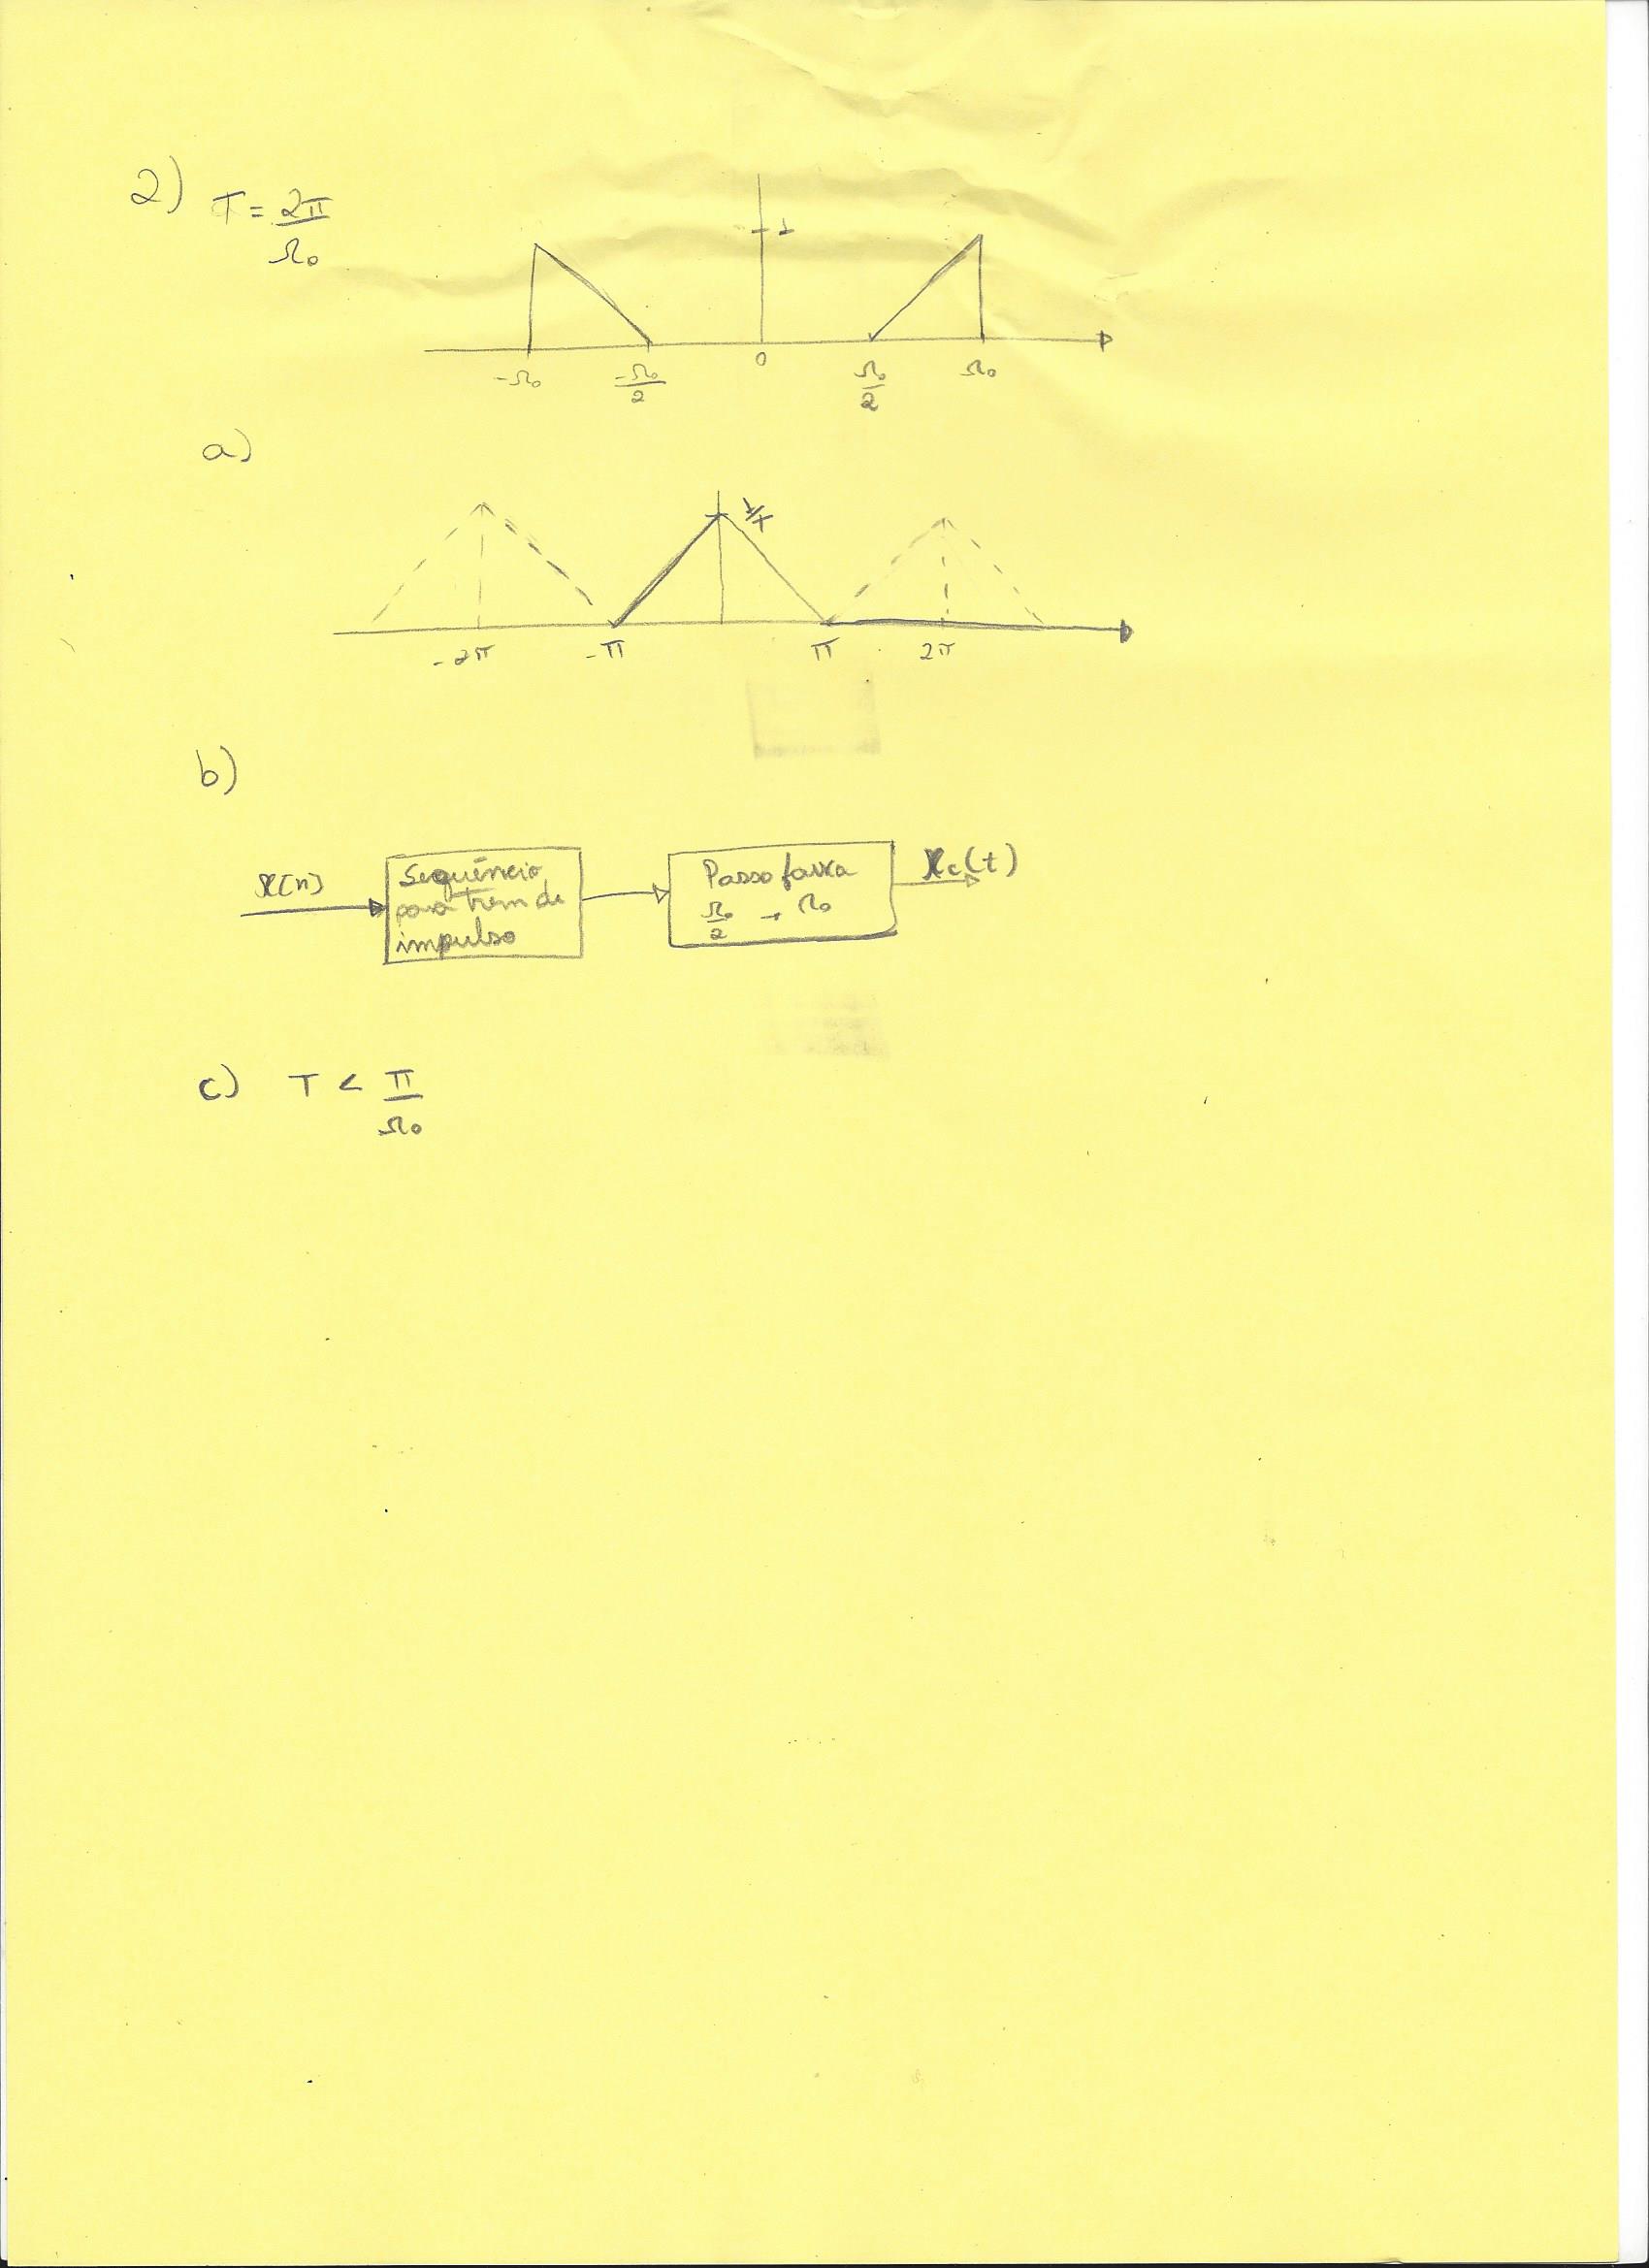 2) T = 2π/Ω₀
1
-Ω₀ -Ω₀/2 0 Ω₀/2 Ω₀
a)
1/T
-2π -π π 2π
b)
x[n] Sequência para trem de impulso Passa faixa Ω₀/2 → Ω₀ xc(t)
c) T < π/Ω₀